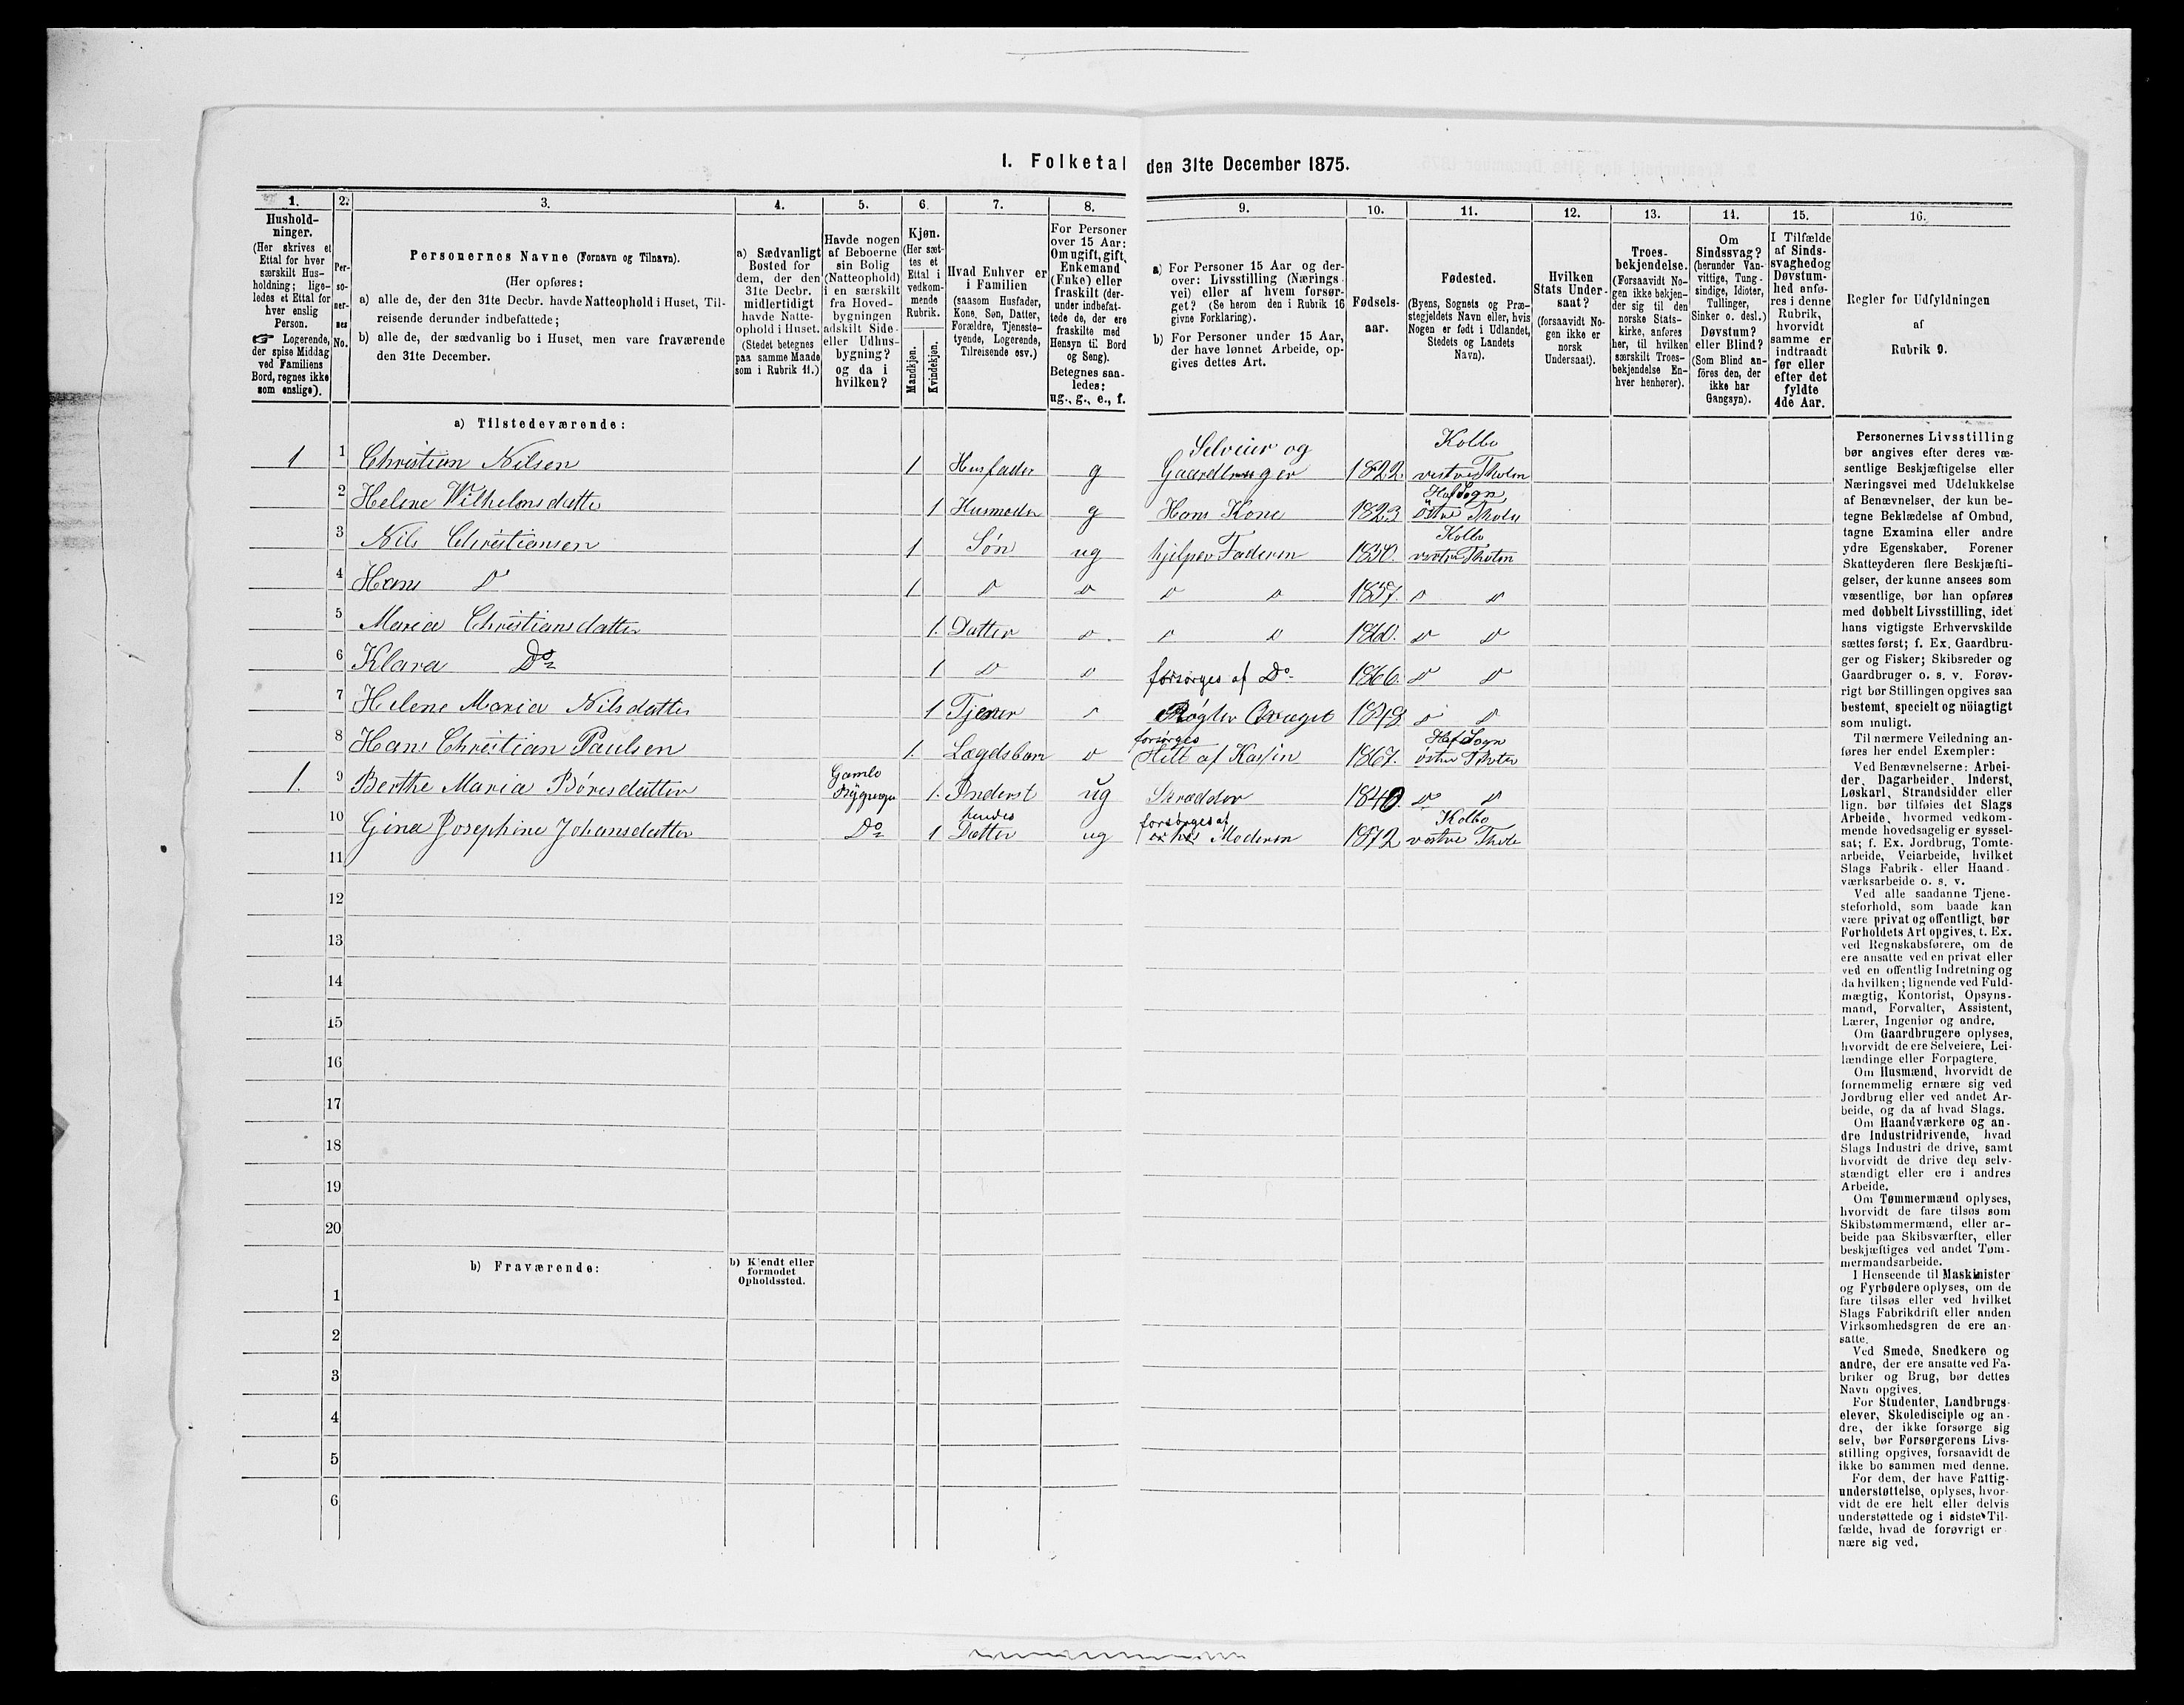 I. Folketal den 31te December 1875.
1. 2. 3. 4. 5. 6. 7. 8. 9. 10. 11. 12. 13. 14. 15. 16.
Hushold-
ninger.
(Her skrives et
Ettal for hver
særskilt Hus-
holdning; lige-
ledes et Ettal for
hver enslig
Person.
☞ Logerende,
der spise Middag
ved Familiens
Bord, regnes ikke
som enslige).
Per-
so-
ner-
nes
No.
Personernes Navne (Fornavn og Tilnavn).
(Her opføres:
a) alle de, der den 31te Decbr. havde Natteophold i Huset, Til-
reisende derunder indbefattede;
b) alle de, der sædvanlig bo i Huset, men vare fraværende
den 31te December.
a) Sædvanligt
Bosted for
dem, der den
31te Decbr.
midlertidigt
havde Natte-
ophold i Huset.
(Stedet betegnes
paa samme Maade
som i Rubrik 11.)
Havde nogen
af Beboerne
sin Bolig
(Natteophold)
i en særskilt
fra Hoved-
bygningen
adskilt Side-
eller Udhus-
bygning?
og da i
hvilken?
Kjøn.
(Her sæt-
tes et
Ettal i
vedkom-
mende
Rubrik.
Mandkjøn.
Kvindekjøn.
Hvad Enhver er
i Familien
(saasom Husfader,
Kone, Søn, Datter,
Forældre, Tjeneste-
tyende, Logerende,
Tilreisende osv.)
For Personer
over 15 Aar:
Om ugift, gift,
Enkemand
(Enke) eller
fraskilt (der-
under indbefat-
tede de, der ere
fraskilte med
Hensyn til Bord
og Seng).
Betegnes saa-
ledes:
ug., g., e., f.
a) For Personer 15 Aar og der-
over: Livsstilling (Nærings-
vei) eller af hvem forsør-
get? (Se herom den i Rubrik 16
givne Forklaring).
b) For Personer under 15 Aar,
der have lønnet Arbeide, op-
gives dettes Art.
Fødsels-
aar.
Fødested.
(Byens, Sognets og Præ-
stegjeldets Navn eller, hvis
Nogen er født i Udlandet,
Stedets og Landets
Navn).
Hvilken
Stats Under-
saat?
(forsaavidt No-
gen ikke er
norsk
Undersaat).
Troes-
bekjendelse.
(Forsaavidt No-
gen ikke bekjen-
der sig til den
norske Stats-
kirke, anføres
her, til hvilken
særskilt Troes-
bekjendelse En-
hver henhører).
Om
Sindssvag?
(herunder Van-
vittige, Tung-
sindige, Idioter,
Tullinger,
Sinker o. desl.)
Døvstum?
eller Blind?
(Som Blind an-
föres den, der
ikke har
Gangsyn).
I Tilfælde
af Sinds-
svaghed og
Døvstum-
hed anfø-
res i denne
Rubrik,
hvorvidt
samme er
indtraadt
før eller
efter det
fyldte
4de Aar.
Regler for Udfyldningen
af
Rubrik 9.
a) Tilstedeværende:
1 1 Christian Nilsen 1 Husfader g Selveier og Gaardbruger 1822. Kolbo vestre Thoten
2 Helene Wilhelmsdatter 1 Husmoder g Hans Kone 1823 Hof Sogn östre Thoten
3 Nils Christiansen 1 Søn ug hjelper Faderen 1850. Kolbo vestre Thoten
4 Hans D 1 D D D D 1857. D D
5 Maria Christiansdatter 1. Datter D. D D 1860. D D
6 Klara Do 1 D D forsørges af Do 1866. D D
7 Helene Maria Nilsdatter 1 Tjener D Røgter Qvæget 1848 D D
8 Hans Christian Paulsen 1. Lægdsbarn D forsørges Helt af Kassen 1867. Hof Sogn östre Thoten
1. 9 Berthe Maria Böresdatter Gamle Bygnegn 1. Inderst ug Skrædder 1840. D D
10 Gina Josephine Johansdatter Do 1. hendes Datter ug forsørges af Moderen 1872 Kolbo vestre Thote
11
12
13
14
15
16
17
18
19
20
b) Fraværende:
b) Kjendt eller
formodet
Opholdssted.
1
2
3
4
5
6
Personernes Livsstilling
bør angives efter deres væ-
sentlige Beskjæftigelse eller
Næringsvei med Udelukkelse
af Benævnelser, der kun be-
tegne Beklædelse af Ombud,
tagne Examina eller andre
ydre Egenskaber. Forener
Skatteyderen flere Beskjæfti-
gelser, der kunne ansees som
væsentlige, bør han opføres
med dobbelt Livsstilling, idet
hans vigtigste Erhvervskilde
sættes først; f. Ex. Gaardbru-
ger og Fisker; Skibsreder og
Gaardbruger o. s. v. Forøv-
rigt bør Stillingen opgives saa
bestemt, specielt og nöiagtigt
som muligt.
Til nærmere Veiledning an-
føres her endel Exempler:
Ved Benævnelserne: Arbei-
der, Dagarbeider, Inderst,
Løskarl, Strandsidder eller
lign. bør tilføies det Slags
Arbeide, hvormed vedkom-
mende hovedsagelig er syssel-
sat; f. Ex. Jordbrug, Tomte-
arbeide, Veiarbeide, hvilket
Slags Fabrik- eller Haand-
værksarbeide o. s. v.
Ved alle saadanne Tjene-
steforhold, som baade kan
være privat og offentligt, bør
Forholdets Art opgives, t. Ex.
ved Regnskabsførere, om de
ere ansatte ved en privat eller
ved en offentlig Indretning og
da hvilken; lignende ved Fuld-
mægtig, Kontorist, Opsyns-
mand, Forvalter, Assistent,
Lærer, Ingeniør og andre.
Om Gaardbrugere oplyses,
hvorvidt de ere Selveiere, Lei-
lændinge eller Forpagtere.
Om Husmænd, hvorvidt de
fornemmelig ernære sig ved
Jordbrug eller ved andet Ar-
beide, og da af hvad Slags.
Om Haandværkere og an-
dre Industridrivende, hvad
Slags Industri de drive, samt
hvorvidt de drive den selv-
stændigt eller ere i andres
Arbeide.
Om Tømmermænd oplyses,
hvorvidt de fare tilsøs som
Skibstømmermænd, eller ar-
beide paa Skibsværfter, eller
beskjæftiges ved andet Tøm-
mermandsarbeide.
I Henseende til Maskinister
og Fyrbødere oplyses, om de
fare tilsøs eller ved hvilket
Slags Fabrikdrift eller anden
Virksomhedsgren de ere an-
satte.
Ved Smede, Snedkere og
andre, der ere ansatte ved Fa-
briker og Brug, bør dettes
Navn opgives.
For Studenter, Landbrugs-
elever, Skoledisciple og an-
dre, der ikke forsørge sig
selv, bør Forsørgerens Livs-
stilling opgives, forsaavidt de
ikke bo sammen med denne.
For dem, der have Fattig-
understøttelse, oplyses, hvor-
vidt de ere helt eller delvis
understøttede og i sidste Til-
fælde, hvad de forøvrigt er-
nære sig ved.